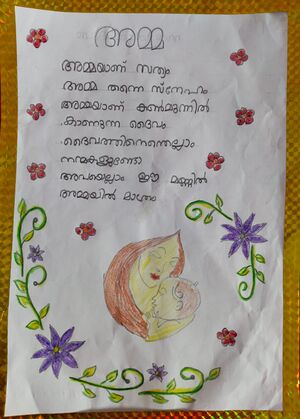 അമ്മ
അമ്മയാണ് സത്യം
അമ്മ തന്നെ സ്നേഹം
അമ്മയാണ് കൺമുന്നിൽ
കാണുന്ന ദൈവം
ദൈവത്തിനെന്തെല്ലാം
നന്മകളുണ്ടോ
അവയെല്ലാം ഈ മണ്ണിൽ
അമ്മയിൽ മാത്രം